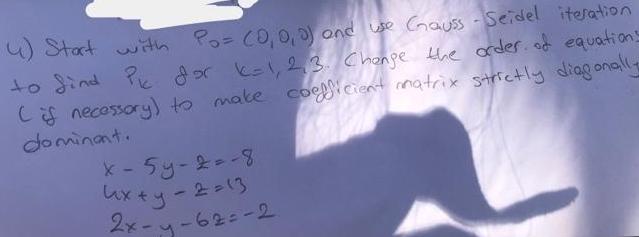 4) Start with P₀ = (0,0,0) and use Gauss-Seidel iteration
to find Pₖ for k=1,2,3. Change the order of equations
(if necessary) to make coefficient matrix strictly diagonally
dominant.
x - 5y - z = -8
4x + y - z = 13
2x - y - 6z = -2